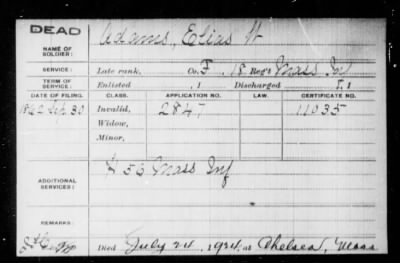 DEAD
NAME OF SOLDIER:
Adams, Elias H
SERVICE:
Late rank, Co. F, 18 Reg't Mass Inf
TERM OF SERVICE:
Enlisted , 1 Discharged , 1
DATE OF FILING.
CLASS.
APPLICATION NO.
LAW.
CERTIFICATE NO.
1862 Sep. 30
Invalid,
2847
11035
Widow,
Minor,
ADDITIONAL SERVICES:
56 Mass Inf
REMARKS:
Died July 24, 1924, at Chelsea, Mass